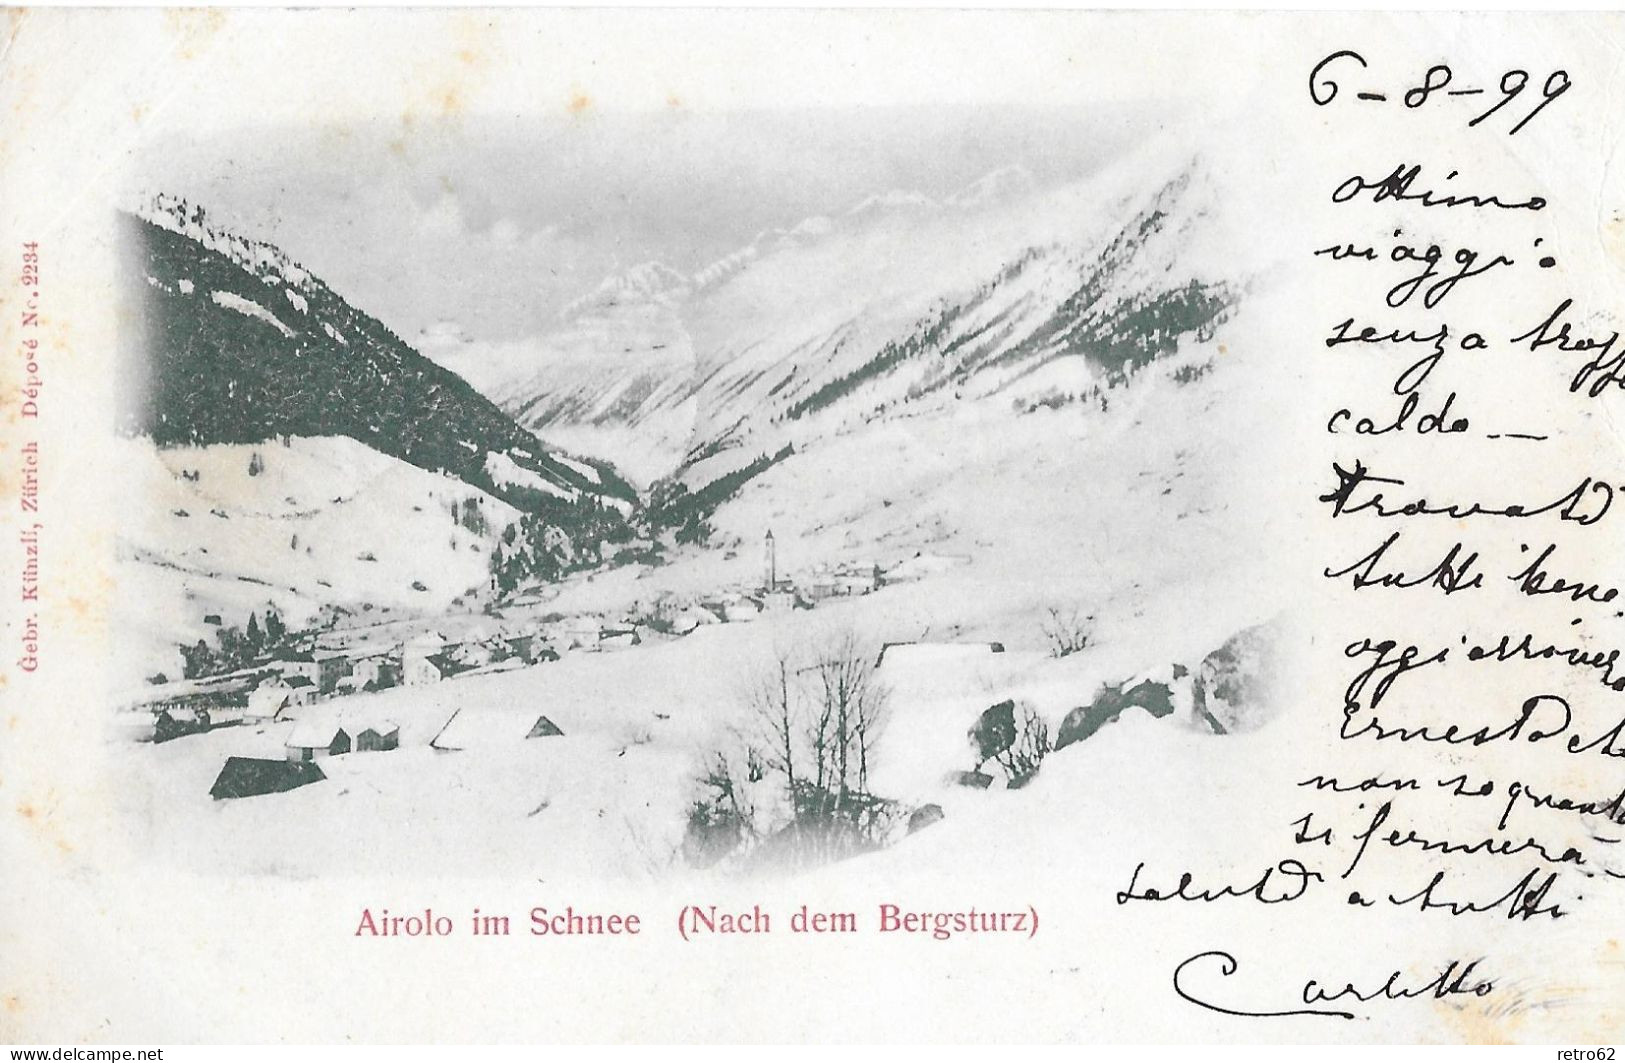 6-8-99
Ottimo
viaggio
senza troppo
caldo —
Trovato
tutti bene.
oggi arriverà
Ernesto che
non so quanto
si fermerà —
saluto a tutti
Carletto
Gebr. Künzli, Zürich Déposé No. 2234
Airolo im Schnee (Nach dem Bergsturz)
www.delcampe.net
retro62